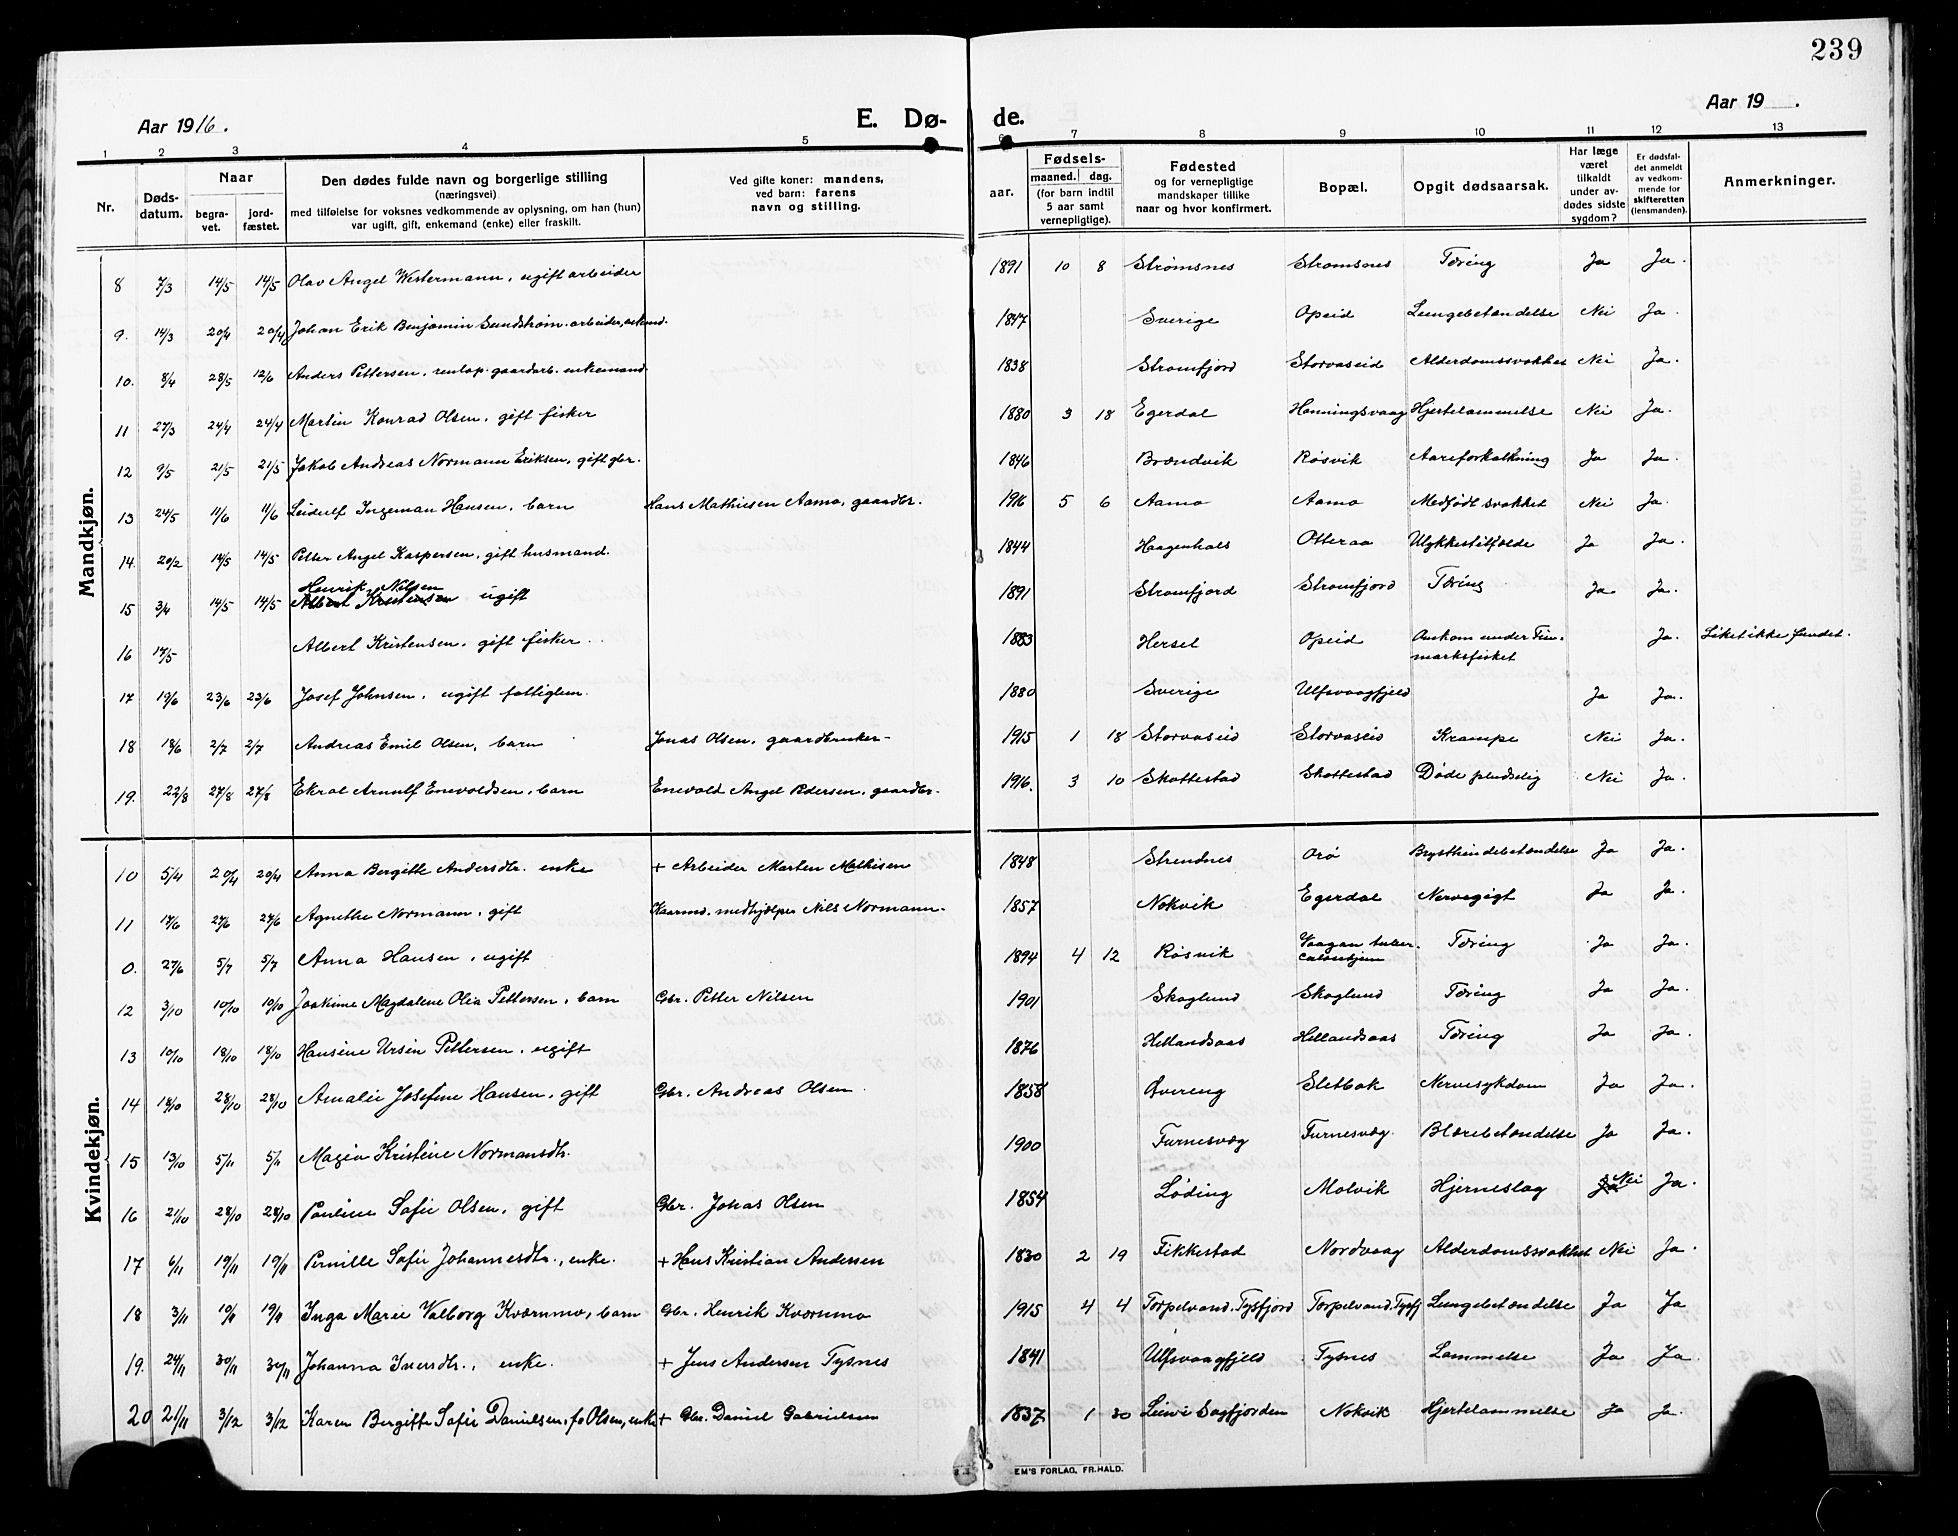 239
Aar 1916.
E. Dø-
de.
Aar 19 .
1 2 3 4 5 6 7 8 9 10 11 12 13
Nr.
Døds-
datum.
Naar
begra-
vet.
jord-
fæstet.
Den dødes fulde navn og borgerlige stilling
(næringsvei)
med tilføielse for voksnes vedkommende av oplysning, om han (hun)
var ugift, gift, enkemand (enke) eller fraskilt.
Ved gifte koner: mandens,
ved barn: farens
navn og stilling.
aar.
Fødsels-
maaned. dag.
(for barn indtil
5 aar samt
vernepligtige).
Fødested
og for vernepligtige
mandskaper tillike
naar og hvor konfirmert.
Bopæl.
Opgit dødsaarsak.
Har læge
været
tilkaldt
under av-
dødes sidste
sygdom?
Er dødsfal-
det anmeldt
av vedkom-
mende for
skifteretten
(lensmanden).
Anmerkninger.
Mandkjøn.
8 7/3 14/5 14/5 Olav Angel Westermann, ugift arbeider 1891 10 8 Strømsnes Strømsnes Tæring Ja Ja.
9. 14/3 20/4 20/4 Johan Erik Benjamin Sundstrøm. arbeider, enkemd. 1847 Sverige Opeid Lungebetændelse Nei Ja.
10. 8/4 28/5 12/6 Anders Pettersen, renlap. gaardarb. enkemand 1838 Strømfjord Storvaseid Alderdomssvakhet Nei Ja.
11 27/3 24/4 24/4 Martin Konrad Olsen, gift fisker 1880 3 18 Egerdal Honningsvaag Hjertelammelse Nei Ja.
12 9/5 21/5 21/5 Jakob Andreas Normann Eriksen, gift gbr. 1846 Brændvik Røsvik Aareforkalkning Ja Ja.
13 24/5 11/6 11/6 Leidulf Ingeman Hansen, barn Hans Mathisen Aamo, gaardbr. 1916 5 6 Aamo Aamo Medfødt svakhet Nei Ja.
14. 20/2 14/5 14/5 Petter Angel Kaspersen, gift husmand. 1844 Haagenhals Otteraa Ulykkestilfælde Ja Ja.
Henrik Nilsen
15 3/4 14/5 14/5 Albert Kristensen ugift 1891 Strømfjord Strømfjord Tæring Ja Ja.
16 14/5 Albert Kristensen, gift fisker 1883 Hersel Opeid Omkom under Fin- Ja. Liket ikke fundet.
marksfisket
17 19/6 23/6 23/6 Josef Johnsen, ugift fattiglem. 1880 Sverige Ulfsvaagfjeld Ja Ja.
18 18/6 2/7 2/7 Andreas Emil Olsen, barn Jonas Olsen, gaardbruker- 1915 1 18 Storvaseid Storvaseid Krampe Nei Ja.
19. 22/8 27/8 27/8 Ekral Arnulf Enevoldsen, barn Enevold Angel Pedersen, gaardbr. 1916. 3 10 Skottestad Skottestad Døde pludselig Nei Ja.
Kvindekjøn.
10 5/4 20/4 20/4 Anna Bergitte Andersdtr. enke + Arbeider Morten Mathisen 1848 Strendnes Orø Brysthindebetændelse Ja Ja.
11 17/6 27/6 27/6 Agnethe Normann, gift Kaarmd. medhjælper Nils Normann. 1857 Nokvik Egerdal Nervegigt Ja Ja.
0. 27/6 5/7 5/7 Anna Hansen, ugift 1894 4 12 Røsvik Vaagan tuber- Tæring Ja Ja.
culosehjem
12 3/10 10/10 10/10 Joakime Magdalene Olea Pettersen, barn Gbr. Petter Nilsen 1901 Skoglund Skoglund Tæring Ja Ja.
13 10/10 18/10 18/10 Hansine Ursin Pettersen, ugift 1876 Hellandsaas Hellandsaas Tæring Ja Ja.
14 18/10 28/10 28/10 Amalie Josefine Hansen, gift Gbr. Andreas Olsen 1858 Øvereng Sletbak Nervesykdom Ja Ja.
15 13/10 5/11 5/11 Magia Kristine Normansdtr. 1900 Furnesvæg Furnesvæg. Blærebetændelse Ja Ja.
16 21/10 28/10 28/10 Pauline Sofie Olsen, gift Gbr. Johas Olsen 1854 Løding Molvik Hjerneslag Ja Nei Ja.
17 6/11 19/11 19/11 Pernille Sofie Johannesdtr., enke. + Hans Kristian Andersen 1830 2 19 Fikkestad Nordvaag Alderdomssvakhet Nei Ja.
18 3/11 19/11 19/11 Inga Marie Valborg Kværnmo, barn Gbr. Henrik Kværnmo 1915 4 4 Torpelvand, Tysfjord Torpelvand, Tysfj Lungebetændelse Ja Ja
19. 24/11 30/11 30/11 Johanna Iversdtr., enke. + Jens Andersen Tysnes 1841 Ulfsvaagfjeld Tysnes Lammelse Ja Ja.
20 21/11 3/12 3/12 Karen Bergitte Sofie Danielsen, f. Olsen, enke + Gbr. Daniel Gabrielsen 1837 1 30 Leines Sagfjorden Nokvik Hjertelammelse Ja Ja.
EM'S FORLAG, FR. HALD.